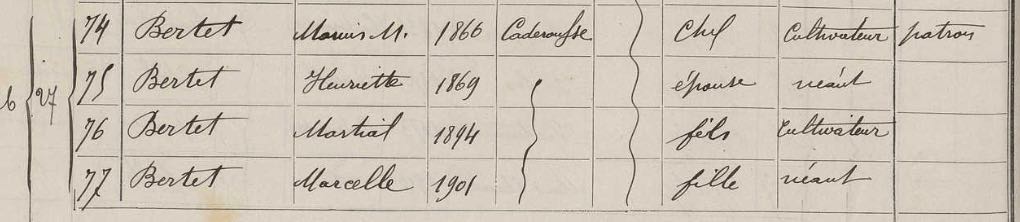 74 Bertet Marius M. 1866 Caderousse Chef Cultivateur patron
6 27 75 Bertet Henriette 1869 épouse néant
76 Bertet Martial 1894 fils Cultivateur
77 Bertet Marcelle 1901 fille néant